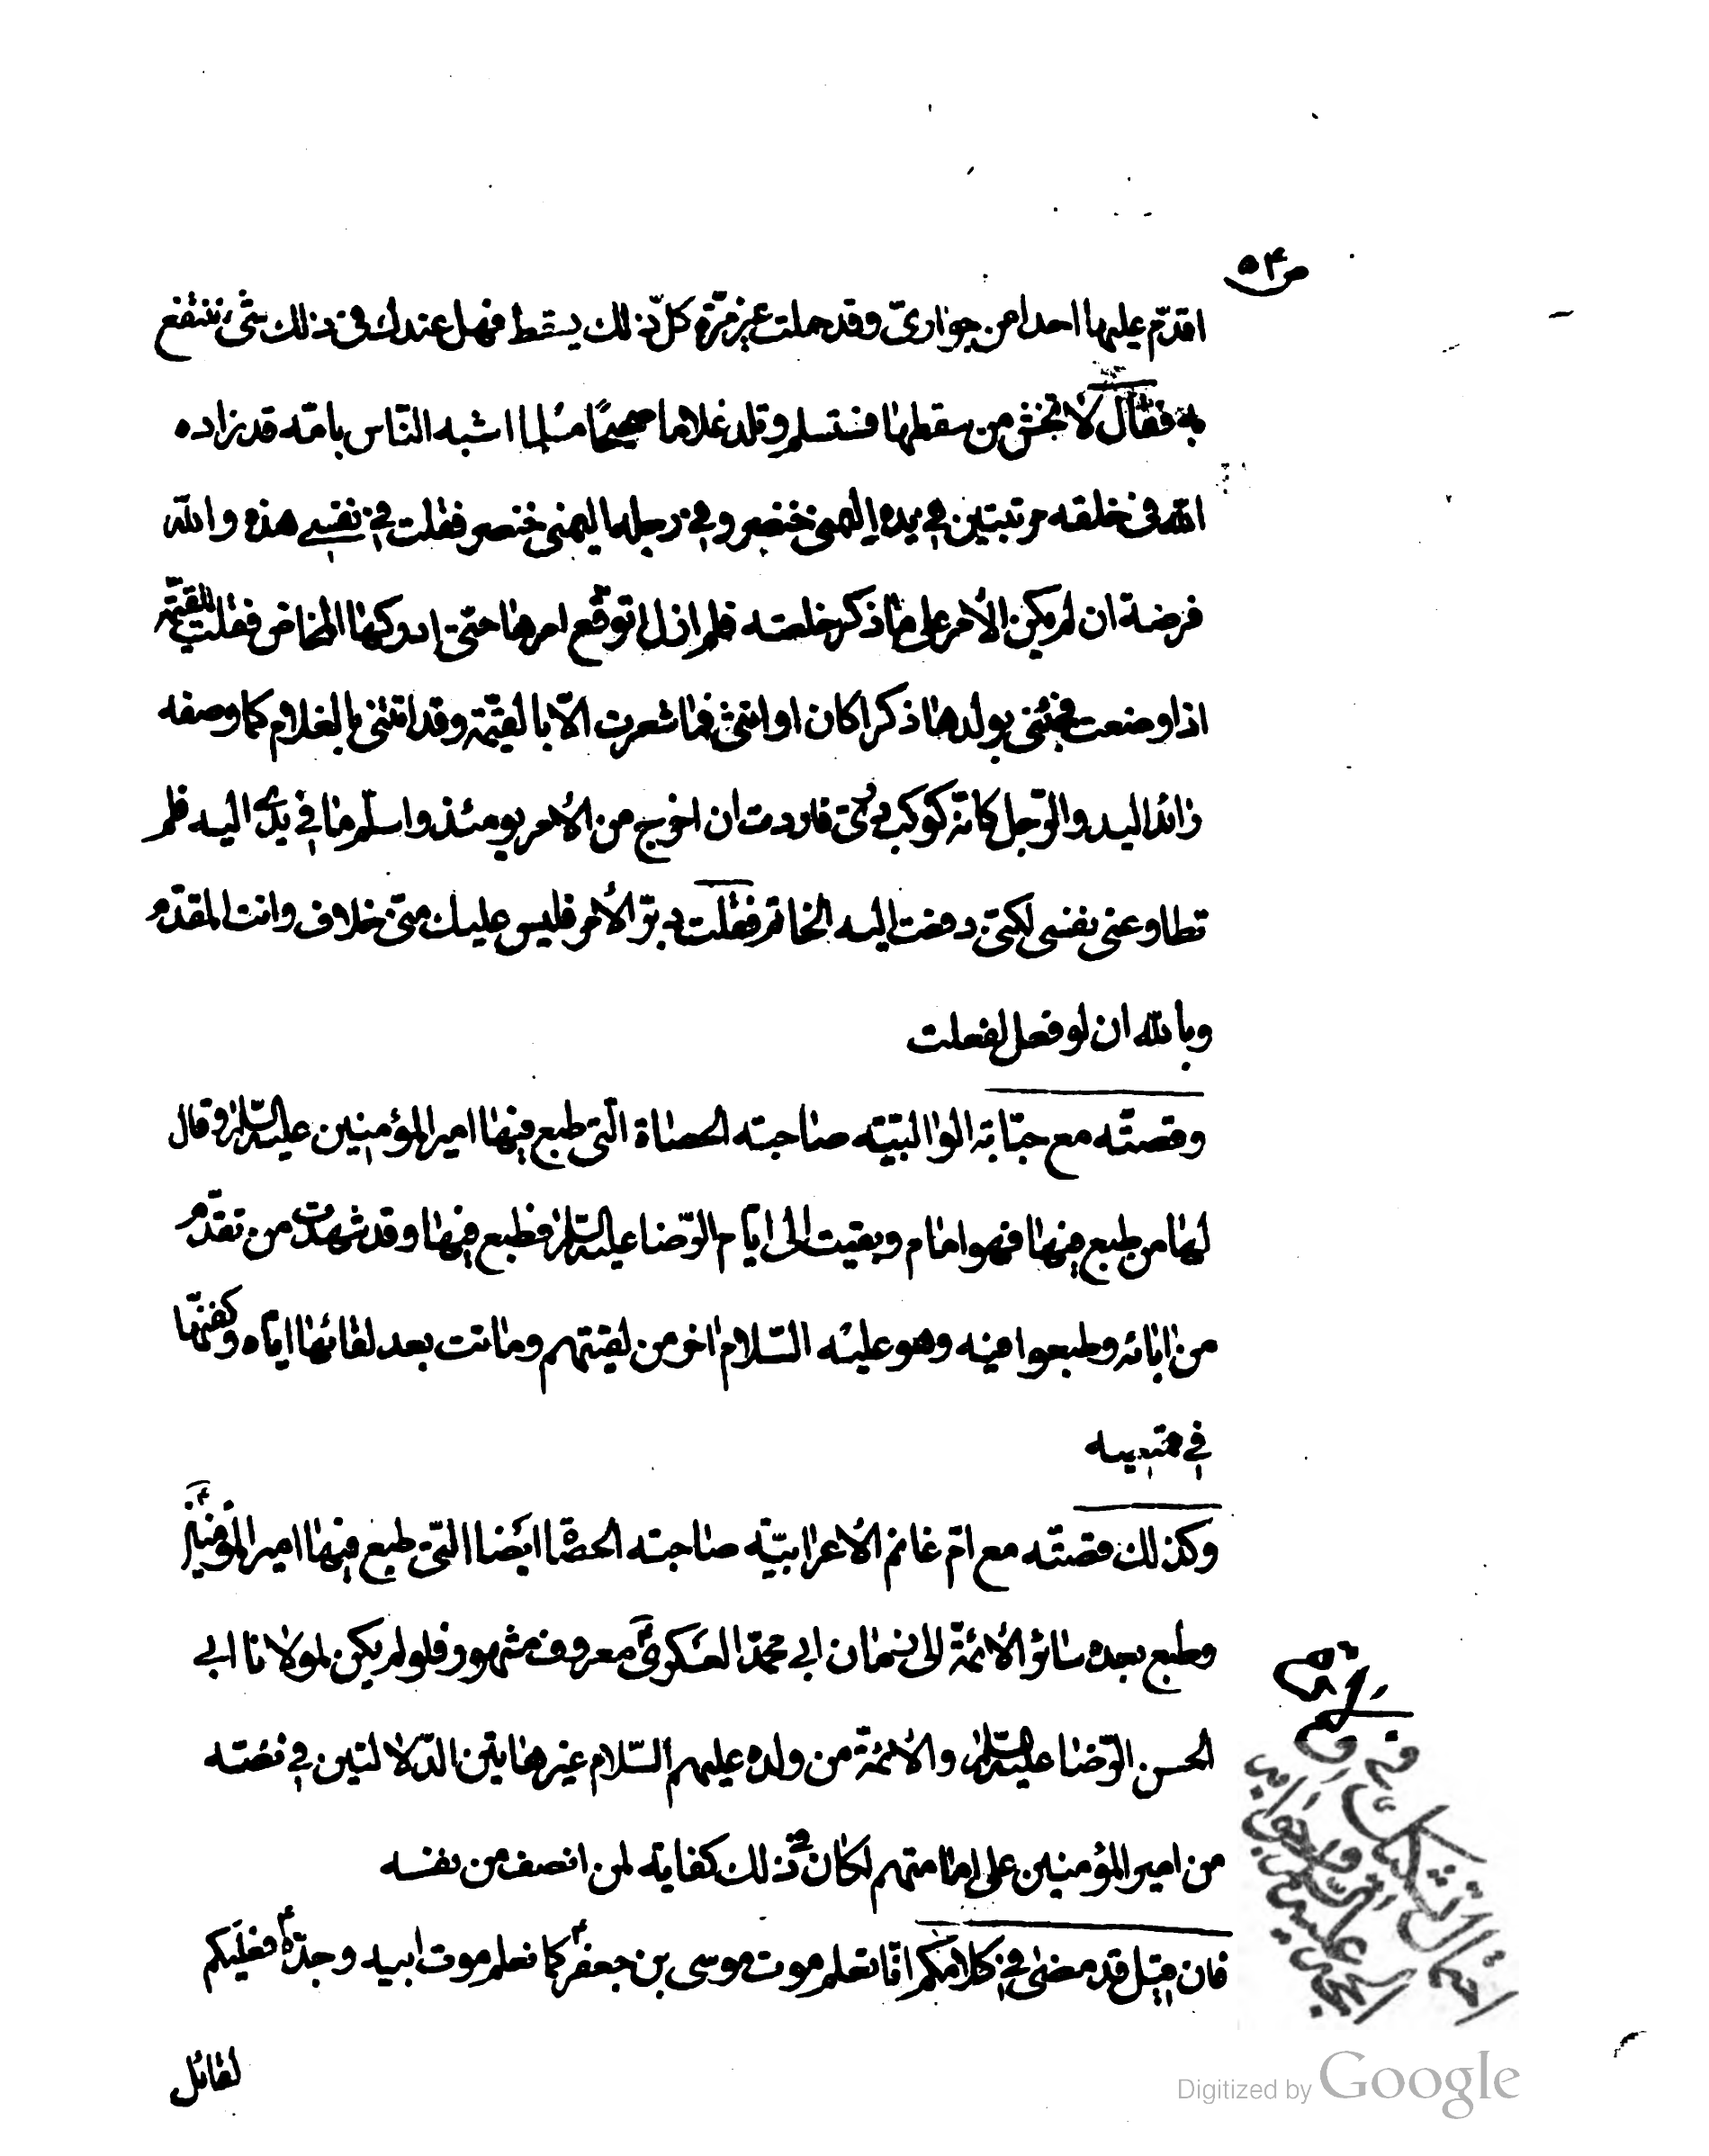 ص ۵۴
اقدّم عليها احدا من جواريّ وقد حملت غير مرّة كلّ ذلك يسقط فهل عندك فى ذلك شئ ننتفع
به فقال لا تخش من سقطها فستسلم وتلد غلاما صحيحًا مسلما اشبه النّاس بامّه قد زاده
اللّه فى خلقه مرتبتين في يده اليمنى خنصر وفي رجله اليمنى خنصر فقلت في نفسي هذه واللّه
فرصة ان لم يكن الأمر على ما ذكر خلعته فلم ازل اتوقّع امرها حتى ادركها المخاض فقلت للقيّمة
اذا وضعت فجئنى بولدها ذكرا كان او انثى فما شعرت الّا بالقيّمة وقد اتتنى بالغلام كما وصفه
زائد اليد والرّجل كانّه كوكب درّى فاردت ان اخرج من الأمر يومئذ واسلّم ما في يدى اليه فلم
تطاوعنى نفسى لكنّى دفعت اليه الخاتم فقلت دبّر الأمر فليس عليك منّى خلاف وانت المقدّم
وبالله ان لو فعل لفعلت
وقصّته مع حبّابة الوالبيّه صاحبته الحصاة الّتى طبع فيها امير المؤمنين عليه السّلام وقال
لها من طبع فيها فهو امام وبقيت الى ايّام الرّضا عليه السّلام فطبع فيها وقد شهدت من تقدّم
من ابائه وطبعوا فيه وهو عليه السّلام اخر من لقيتهم وماتت بعد لقائها ايّاه وكفنها
في قميصه
وكذلك قصّته مع امّ غانم الأعرابيّة صاحبته الحصاة ايضا الّتى طبع فيها امير المؤمنين
وطبع بعده سائر الأئمّة الى زمان ابي محمّد العسكرىّ معروف مشهور فلو لم يكن لمولانا ابي
الحسن الرّضا عليه السّلام والأئمّة من ولده عليهم السّلام غير هاتين الدّلالتين في نصّه
من امير المؤمنين على امامتهم لكان فى ذلك كفاية لمن انصف من نفسه
فان قيل قد مضى في كلامكم انّا نعلم موت موسى بن جعفر كما نعلم موت ابيه وجدّه فعليكم
لقائل
Digitized by Google